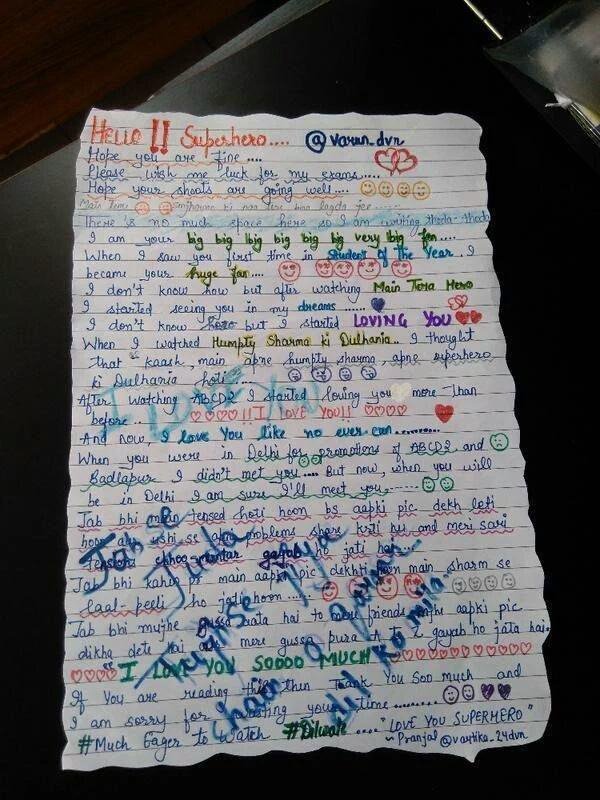 Hello!! Superhero.... @varun_dvn
Hope you are fine....
Please wish me luck for my exams....
Hope your shoots are going well....
Main Tenu ki naa tere bina lagda jee.....
There's no much space here so I am writing thoda-thoda
I am your big big big big big big very big fan....
When I saw you first time in Student of the Year. I
became your huge fan....
I don't know how but after watching Main Tera Hero
I started seeing you in my dreams......
I don't know how but I started LOVING YOU
When I watched Humpty Sharma ki Dulhania.. I thought
that "kaash, main apne humpty sharma apne superhero
ki Dulhania hoti"....
After watching ABCD2 I started loving you more than
before.. !!I LOVE YOU!!
And now, I love You like no ever can..........
When you were in Delhi for promotions of ABCD2 and
Badlapur I didn't meet you.... But now, when you will
be in Delhi I am sure I'll meet you.......
Jab bhi main tensed hoti hoon bs aapki pic dekh leti
hoon aur ushi se apni problems share krti hu and meri sari
tensions chhoo-mantar gayab ho jati hai
Jab bhi kahin pr main aapki pic dekhti hoon main sharm se
laal-peeli ho jati hoon....
Jab bhi mujhe gussa aata hai to mere friends mujhe aapki pic
dikha dete hai aur mere gussa pura A to Z gayab ho jata hai.
"I LOVE YOU SOOOO MUCH"
If You are reading this then Thank You Soo much and
I am sorry for wasting your time.........
#Much Eager to Watch #Dilwale .... "LOVE YOU SUPERHERO"
~ Pranjal @vartika_24dvn
I Love You
Jab se
Juda
chain
dil ko mila